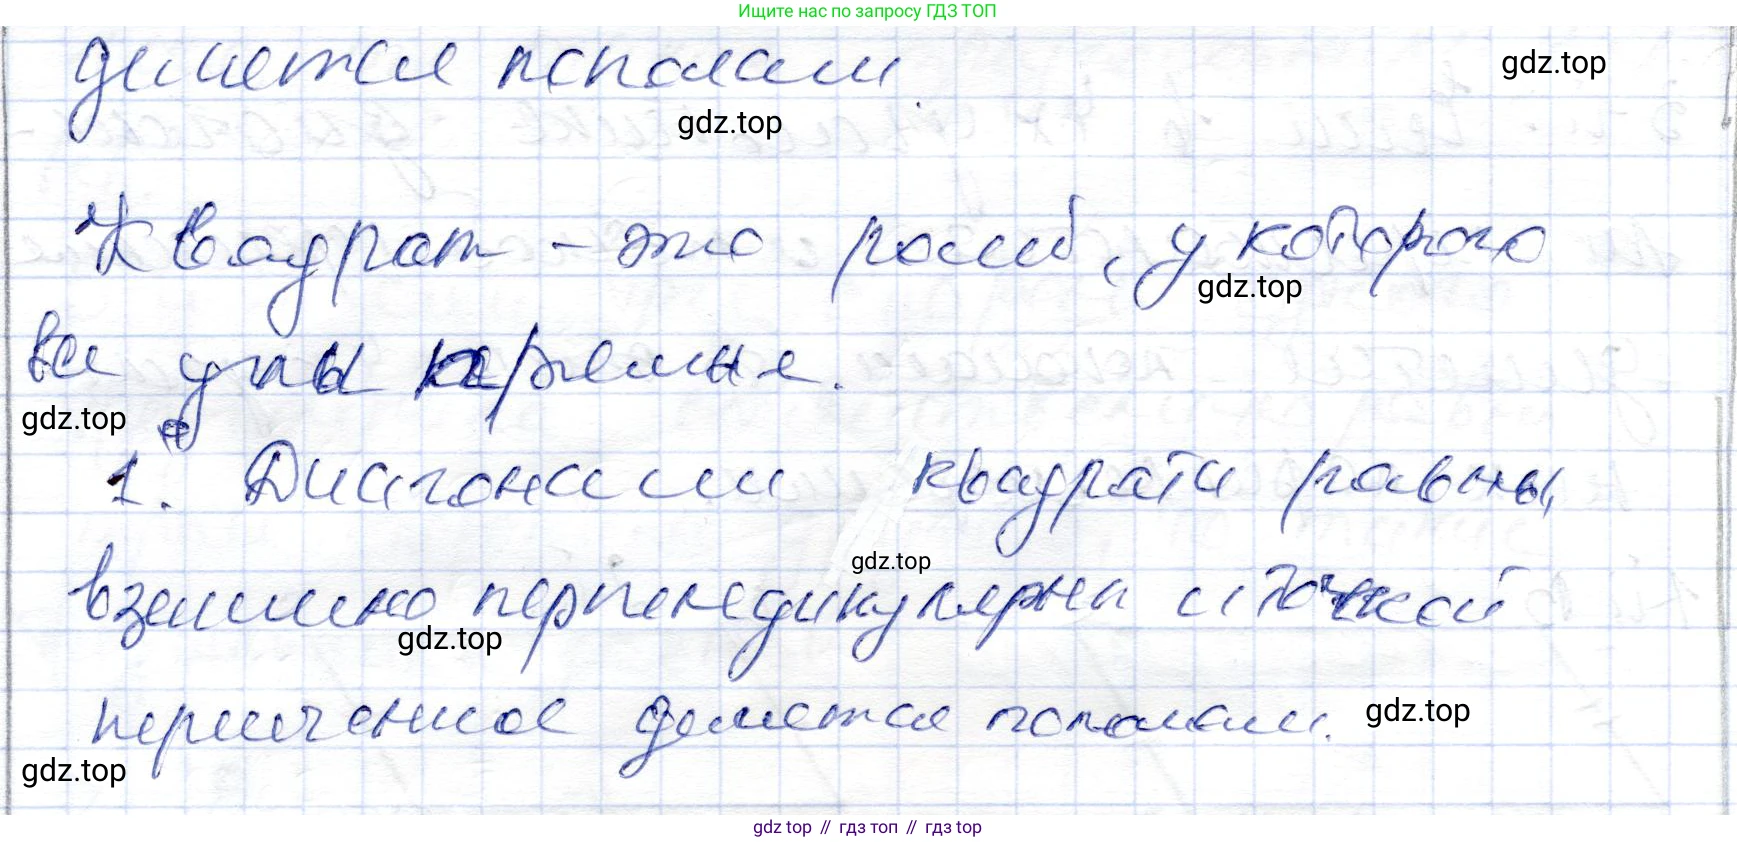 Ищите нас по запросу ГДЗ ТОП
делится пополам.
gdz.top
gdz.top
Квадрат - это ромб, у которого
gdz.top
все углы прямые.
gdz.top
1. Диагонали квадрата равны,
gdz.top
взаимно перпендикулярны и точкой
gdz.top
пересечения делятся пополам.
gdz.top
gdz.top
gdz top // гдз топ // гдз top